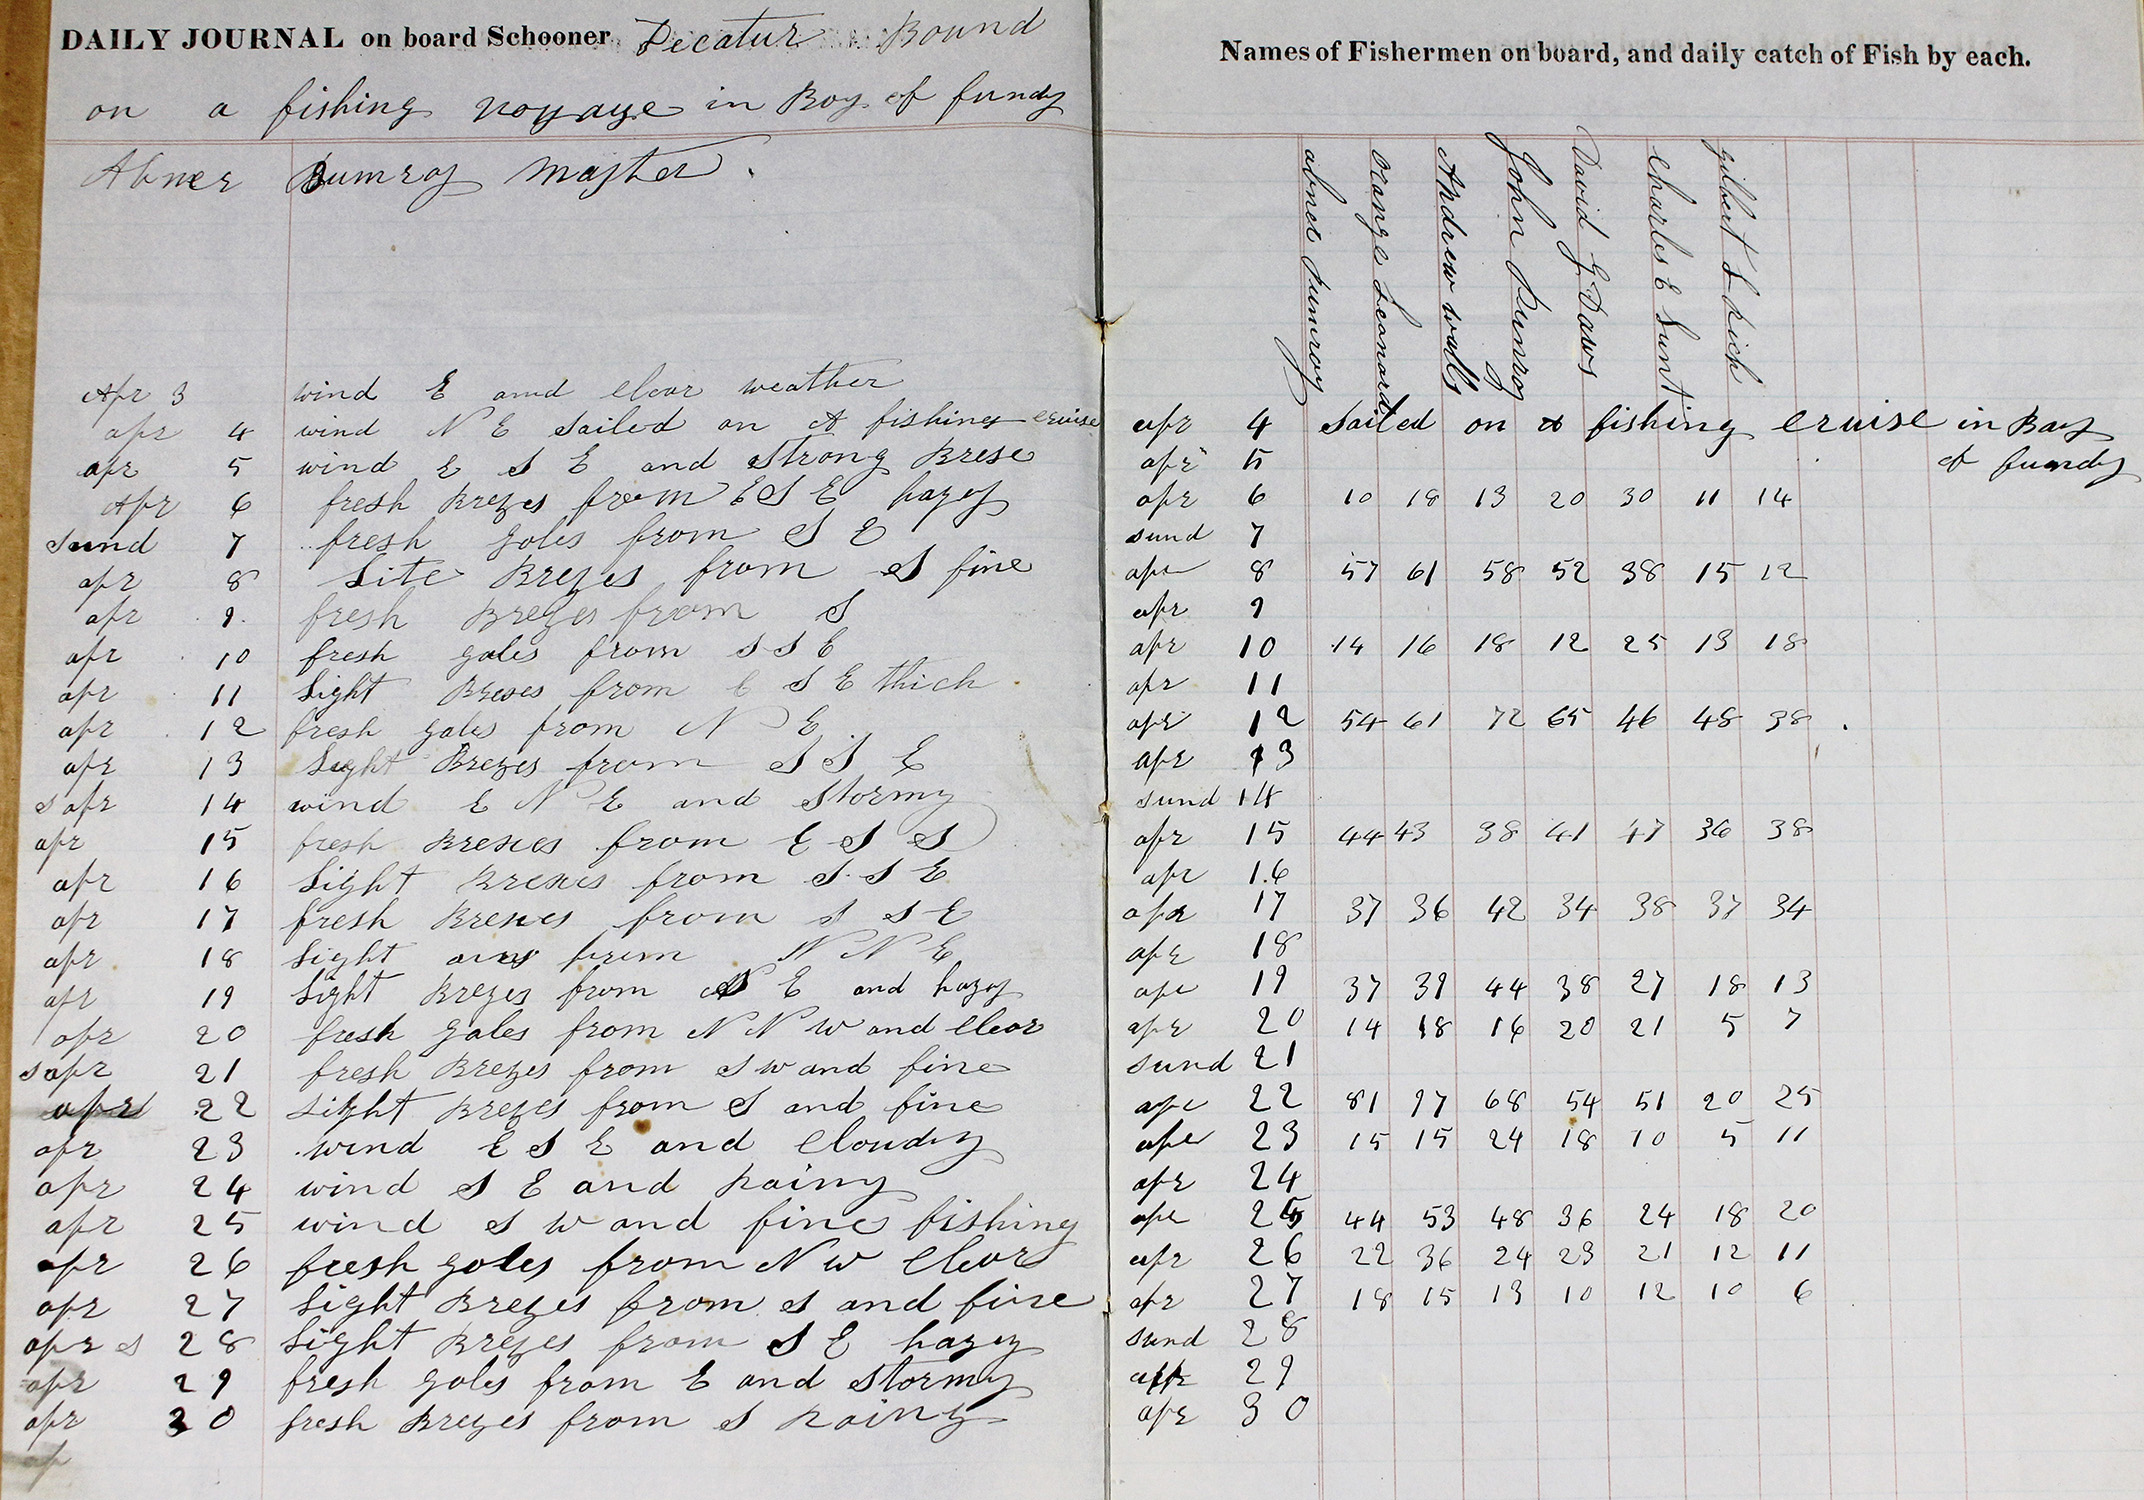 DAILY JOURNAL on board Schooner Decatur Bound
on a fishing voyage in Bay of fundy
Abner Dumroy Master.
Apr 3 wind E and clear weather
apr 4 wind N E Sailed on A fishing cruise
apr 5 wind E S E and Strong Brese
Apr 6 fresh Brezes from E S E hazey
sund 7 fresh gales from S E
apr 8 Lite Brezes from S fine
apr 9 fresh Brezes from S
apr 10 fresh gales from S S E
apr 11 Light Breses from E S E thick
apr 12 fresh gales from N E
apr 13 Light Brezes from S S E
s apr 14 wind E N E and Stormy
apr 15 fresh Breses from E S S
apr 16 Light Breses from S S E
apr 17 fresh Breses from S S E
apr 18 Light airs from N N E
apr 19 Light Brezes from S E and hazy
apr 20 fresh gales from N N W and clear
s apr 21 fresh Brezes from S W and fine
apr 22 Light Brezes from S and fine
apr 23 wind E S E and Cloudy
apr 24 wind S E and Rainy
apr 25 wind S W and fine fishing
apr 26 fresh gales from N W Clear
apr 27 Light Brezes from S and fine
apr s 28 Light Brezes from S E hazy
apr 29 fresh gales from E and Stormy
apr 30 fresh Brezes from S Rainy
ap
Names of Fishermen on board, and daily catch of Fish by each.
abner Dumroy
Orange Leonard
Andrew walls
John Dunroy
David G Daws
Charles E Lunt
gilbert L Rich
apr 4 Sailed on a fishing cruise in Bay
apr 5 of fundy
apr 6 10 18 13 20 30 11 14
sund 7
apr 8 57 61 58 52 38 15 12
apr 9
apr 10 14 16 18 12 25 13 18
apr 11
apr 12 54 61 72 65 46 48 38
apr 13
sund 14
apr 15 44 43 38 41 47 36 38
apr 16
apr 17 37 36 42 34 38 37 34
apr 18
apr 19 37 39 44 38 27 18 13
apr 20 14 18 16 20 21 5 7
sund 21
apr 22 81 97 68 54 51 20 25
apr 23 15 15 24 18 10 5 11
apr 24
apr 25 44 53 48 36 24 18 20
apr 26 22 36 24 23 21 12 11
apr 27 18 15 13 10 12 10 6
sund 28
apr 29
apr 30